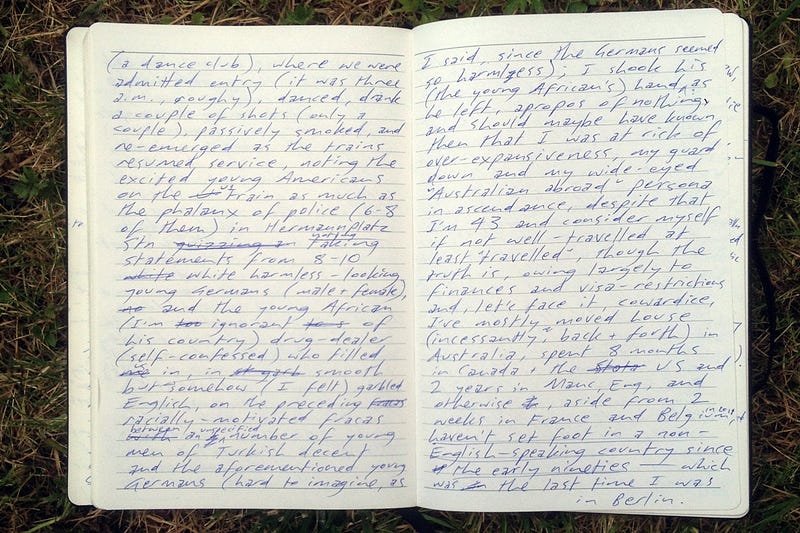 (a dance club), where we were
admitted entry (it was three
a.m., roughy), danced, drank
a couple of shots (only a
couple), passively smoked, and
re-emerged as the trains
resumed service, noting the
excited young Americans
on the train as much as
the phalanx of police (6-8
of them) in Hermannplatz
Stn quizzing an taking
statements from 8-10
white white harmless-looking
young Germans (male + female),
and the young African
(I'm too ignorant of
his country) drug-dealer
(self-confessed) who filled
in, in smooth
but somehow (I felt) garbled
English, on the preceding fracas
racially-motivated fracas
between unspecified
with an number of young
men of Turkish decent
and the aforementioned young
Germans (hard to imagine, as
I said, since the Germans seemed
so harmless); I shook his
(the young African's) hand as
he left, apropos of nothing,
and should maybe have known
then that I was at risk of
over-expansiveness, my guard
down and my wide-eyed
"Australian abroad" persona
in ascendance, despite that
I'm 43 and consider myself
if not well-travelled at
least "travelled", though the
truth is, owing largely to
finances and visa-restrictions
and, let's face it, cowardice,
I've mostly moved house
(incessantly, back + forth) in
Australia, spent 8 months
in Canada + the US and
2 years in Manc, Eng, and
otherwise, aside from 2
weeks in France and Belgium
haven't set foot in a non-
English-speaking country since
the early nineties — which
was the last time I was
in Berlin.